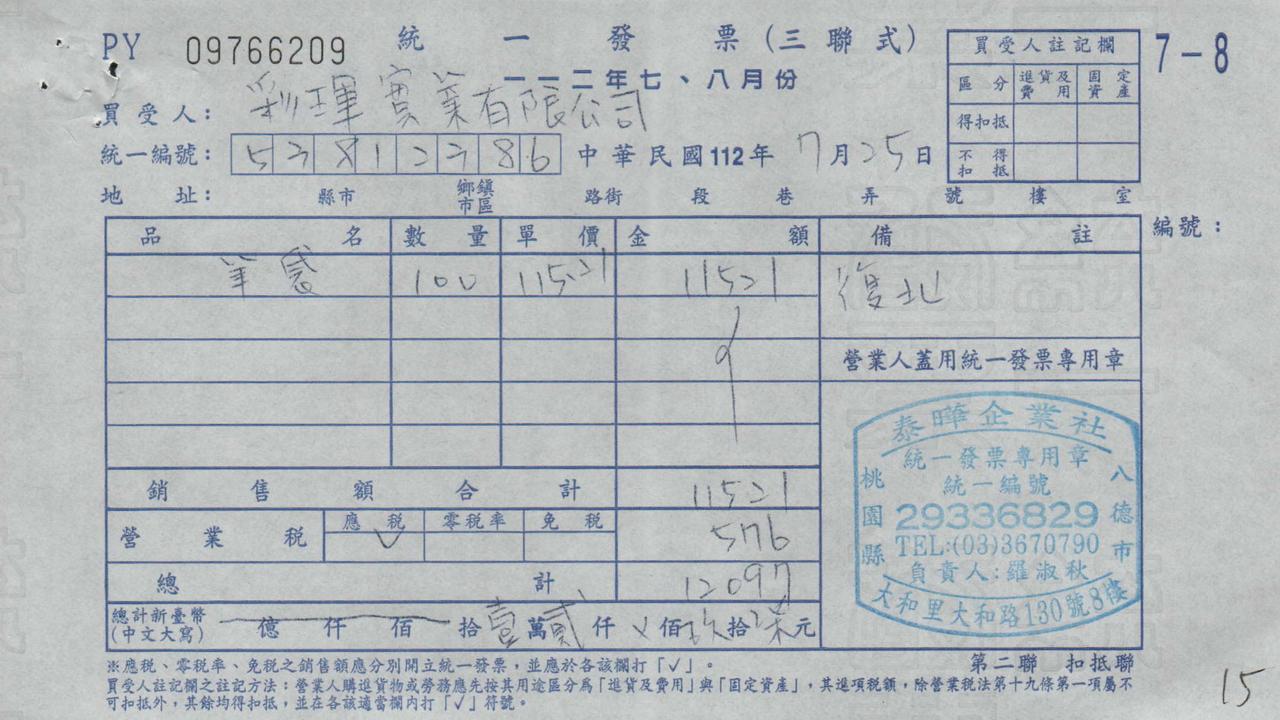 PY 09766209 統一發票(三聯式) 7-8
一一二年七、八月份
買受人註記欄
區分 進貨及費用 固定資產
得扣抵
不得扣抵
買受人: 彩琿實業有限公司
統一編號: 53812386 中華民國112年7月25日
地址: 縣市 鄉鎮市區 路街 段 巷 弄 號 樓 室
品名 數量 單價 金額 備註 編號:
筆袋 100 115.21 11521 復北
營業人蓋用統一發票專用章
銷售額合計 11521
營業稅 應稅 零稅率 免稅
√ 576
總計 12097
總計新臺幣(中文大寫) 億仟佰拾壹萬貳仟√佰玖拾柒元
泰曄企業社
統一發票專用章
統一編號
29336829
TEL:(03)3670790
負責人:羅淑秋
桃園縣
八德市
大和里大和路130號8樓
※應稅、零稅率、免稅之銷售額應分別開立統一發票,並應於各該欄打「√」。
第二聯 扣抵聯
買受人註記欄之註記方法:營業人購進貨物或勞務應先按其用途區分為「進貨及費用」與「固定資產」,其進項稅額,除營業稅法第十九條第一項屬不
可扣抵外,其餘均得扣抵,並在各該適當欄內打「√」符號。
15